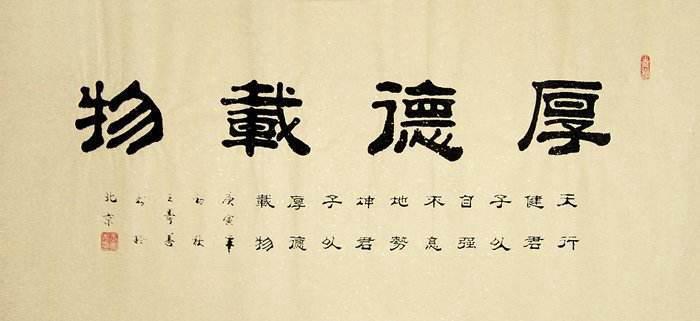 厚德載物
天行
健君
子以
自强
不息
地勢
坤君
子以
厚德
載物
庚寅年
北京